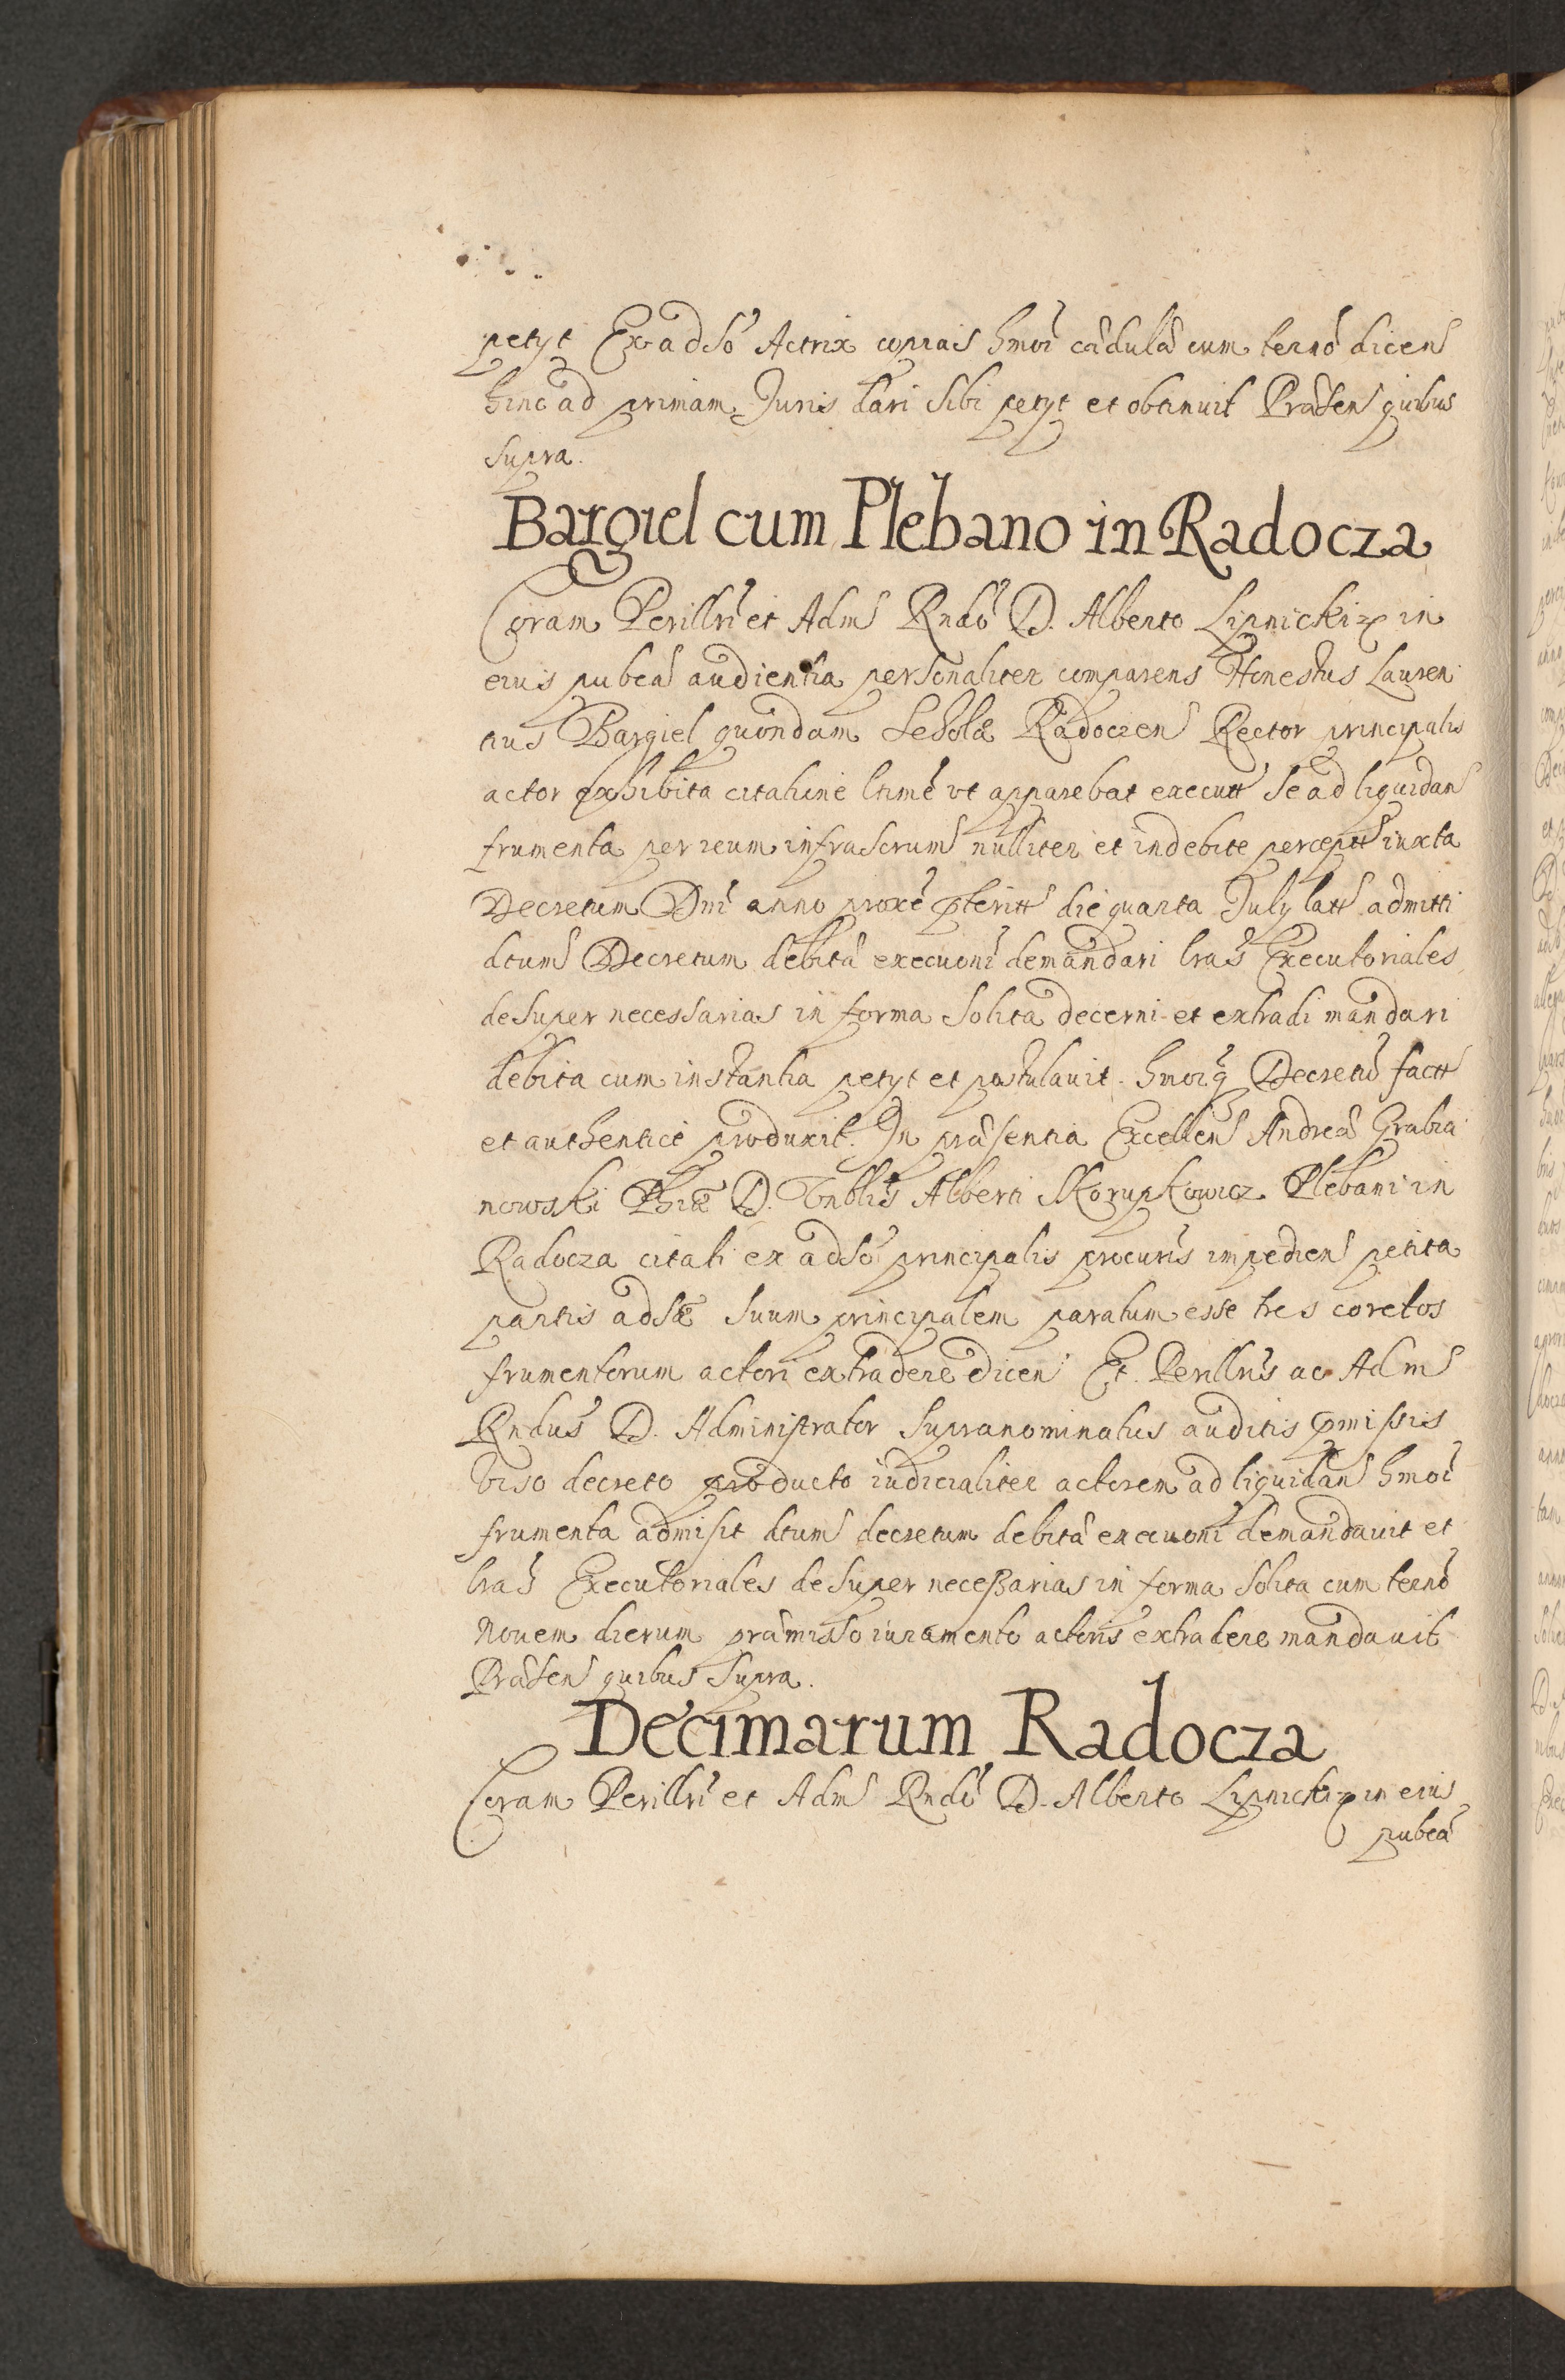 petyt Ex adso Actrix copiais hmoi cedulã cum termõ dicen
hinc ad primam Juris dari sibi petyt et obtinuit Præsen quibus
supra.
Bargiel cum Plebano in Radocza
Coram Perillri et Adm Rndo D. Alberto Lipnicki in
eius pubca audientia personaliter comparens Honestus Lauren
tius Bargiel quondam Scholæ Radoczen Rector principalis
actor exhibita citatione ltime vt apparebat executt se ad liquidan
frumenta per reum infrascrum nulliter et indebite perceptt iuxta
Decretum Dni anno proxe pteritt die quarta July latt admitti
dtum Decretum debitæ execuoni demandari lras Executoriales
desuper necessarias in forma solita decerni et extradi mandari
debita cum instantia petyt et postulavit. hmoiq Decretu factt
et authentice produxit. In præsentia Excellen Andreæ Grabia
nowski Phiæ D. Vnblis Alberti Skorupkowicz Plebani in
Radocza citati ex adso principalis procuris impedien petita
partis adsæ suum principalem paratum esse tres coretos
frumentorum actori extradere dicen Et Perillris ac Adm
Rndus D. Administrator supranominatus auditis pmissis
viso decreto producto iudicialiter actorem ad liquidan hmoi
frumenta admisit dtum decretum debitæ execuoni demandavit et
lras Executoriales desuper necessarias in forma solita cum termo
Novem dierum præmisso iuramento actoris extradere mandavit
Præsen quibus supra.
Decimarum Radocza
Coram Perillri et Adm Rndo D. Alberto Lipnicki in eius
pubca